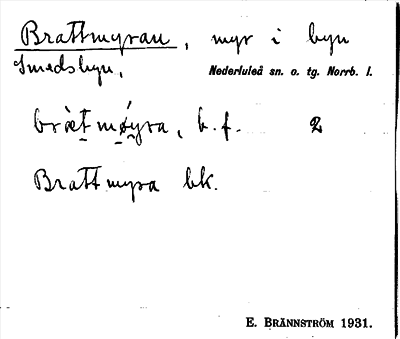 Brattmyran, myr i byn
Smedsbyn,
Nederluleå sn. o. tg. Norrb. l.
bràt̬ møyra, b. f. 2
Brattmyra bk.
E. BRÄNNSTRÖM 1931.